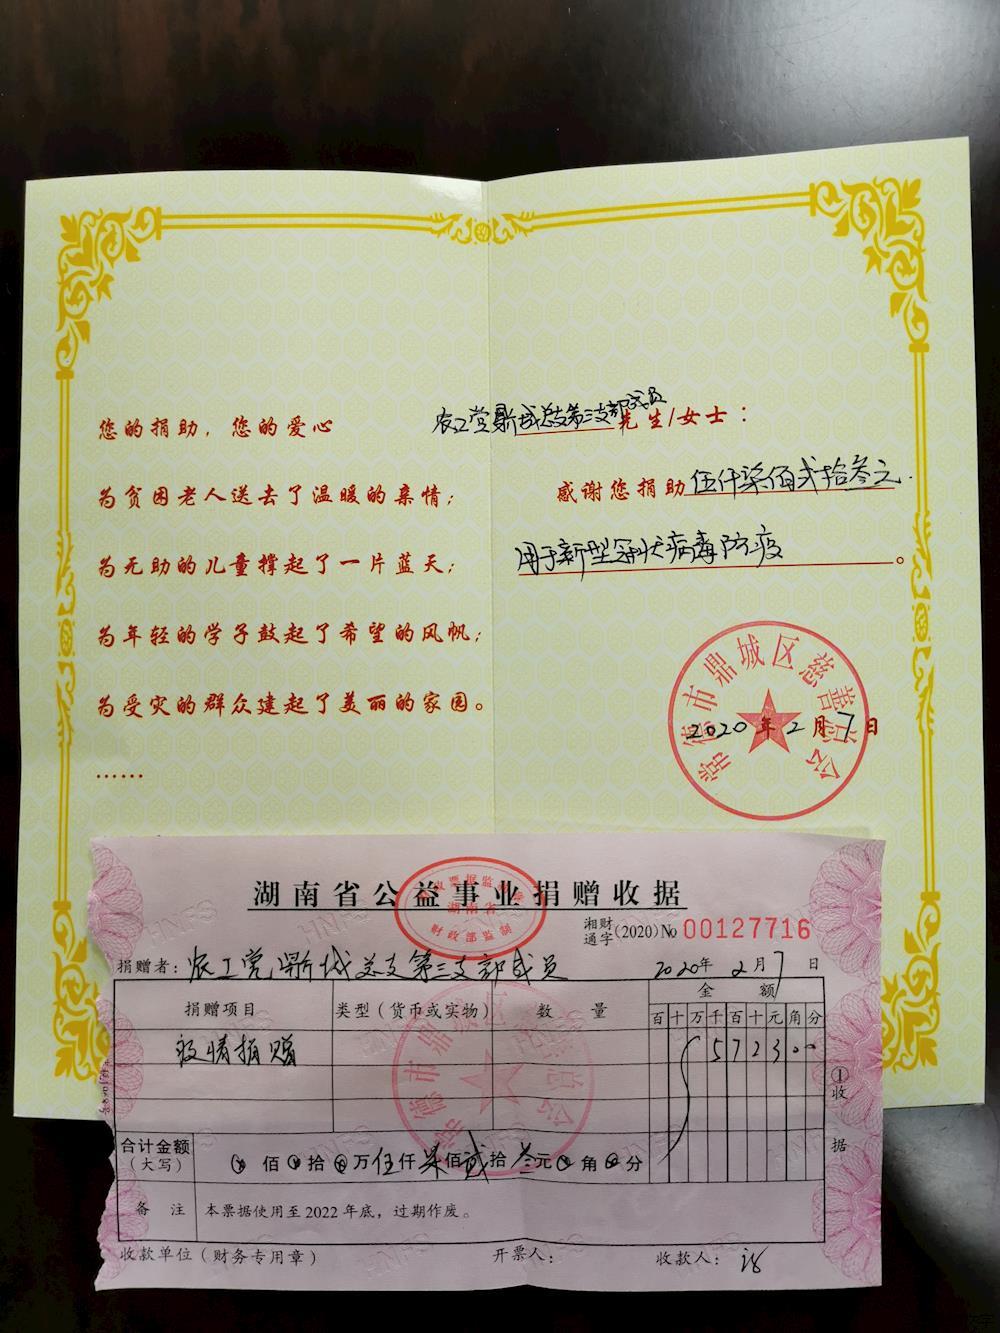 您的捐助，您的爱心
为贫困老人送去了温暖的亲情；
为无助的儿童撑起了一片蓝天；
为年轻的学子鼓起了希望的风帆；
为受灾的群众建起了美丽的家园。
……
农工党鼎城总支第三支部成员先生/女士：
感谢您捐助伍仟柒佰贰拾叁元.
用于新型冠状病毒防疫。
常德市鼎城区慈善总会
2020年2月7日
湖南省公益事业捐赠收据
湖南省
财政部监制
湘财通字(2020)No 00127716
捐赠者：农工党鼎城总支第三支部成员 2020年2月7日
捐赠项目 类型（货币或实物） 数量 金额
百十万千百十元角分
疫情捐赠 5 7 2 3 0 0
合计金额（大写） ⊗佰⊗拾⊗万伍仟柒佰贰拾叁元⊗角⊗分
备注 本票据使用至2022年底，过期作废。
收款单位（财务专用章） 开票人： 收款人：
①收据